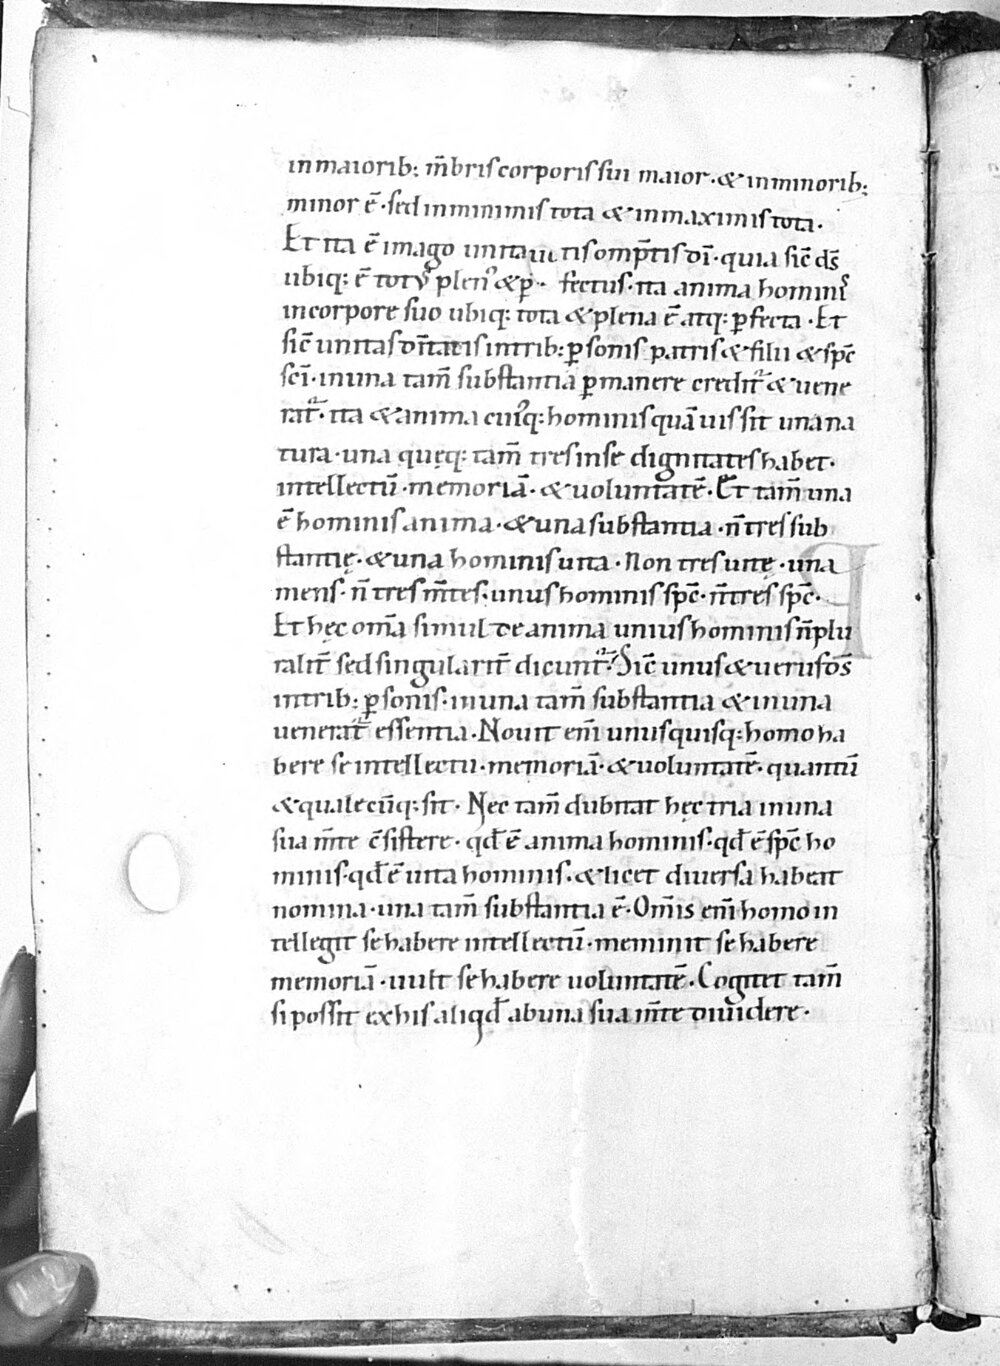 in maiorib; m̄bris corporis sui maior · & in minorib;
minor ē · sed in minimis tota & in maximis tota ·
Et ita ē imago unitatis omp̄tis dī · quia sic̄ ds̄
ubiq; ē totus plen᾿ & p̱ fectus · ita anima homini᾿
in corpore suo ubiq; tota & plena ē atq; p̱fecta · Et
sic̄ unitas dīt̄atis in trib; p̱sonis patris & filii & sp̄c
sc̄i · in una tam̄ substantia p̱manere credit᷑ & uene
rat᷑ · ita & anima cui᾿q; hominis quā uis sit una na
tura · una quęq; tam̄ tres in se dignitates habet ·
intellectū · memoriā · & uoluntatē · Et tam̄ una
ē hominis anima · & una substantia · n̄ tres sub
stantię · & una hominis uita · Non tres uitę · una
mens · n̄ tres m̄tes · unus hominis sp̄c · n̄ tres sp̄c ·
Et hęc om̄a simul de anima unius hominis n̄ plu
ralit̄ sed singularit̄ dicunt᷑ · Sic̄ unus & uerus do̅s
in trib; p̱sonis · in una tam̄ substantia & in una
uenerat᷑ essentia · Nouit eni̅ unusquisq; homo ha
bere se intellectū · memoriā · & uoluntatē · quantū
& qualecūq; sit · Nec tam̄ dubitat hęc tria in una
sua m̄te c̄sistere · qd̄ ē anima hominis · qd̄ ē sp̄c ho
minis · qd̄ ē uita hominis · & licet diuersa habeat
nomina · una tam̄ substantia ē · Om̄is eni̅ homo in
tellegit se habere intellectū · meminit se habere
memoriā · uult se habere uoluntatē · Cogitet tam̄
si possit ex his aliqd̄ ab una sua m̄te diuidere ·